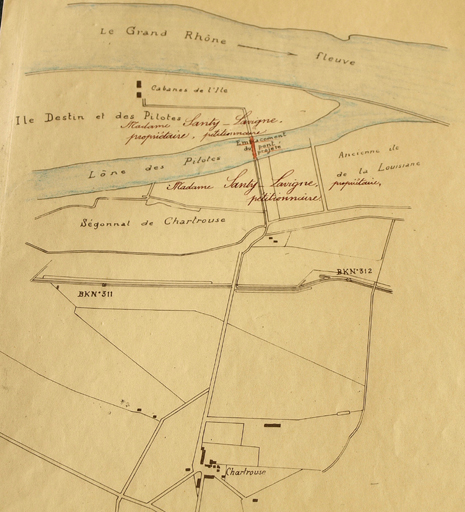 Le Grand Rhône fleuve
Cabanes de l'Ile
Ile Destin et des Pilotes
Madame Santy-Lavigne,
propriétaire, pétitionnaire
Emplacement
du pont
projeté
Lône des Pilotes
Ancienne île
de la Louisiane
propriétaire,
Madame Santy-Lavigne,
pétitionnaire
Ségonnal de Chartrouse
BKN°312
BKN°311
Chartrouse